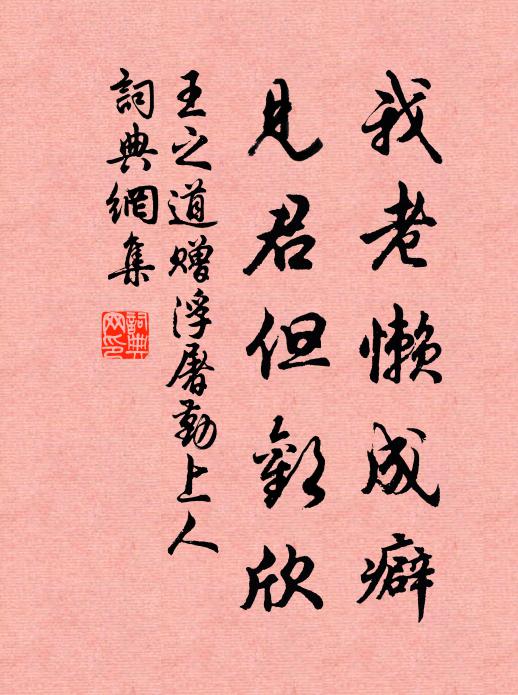 我老懒成癖
見君但歡欣
王之道赠浮屠勤上人
詞典網集
詞典
网印